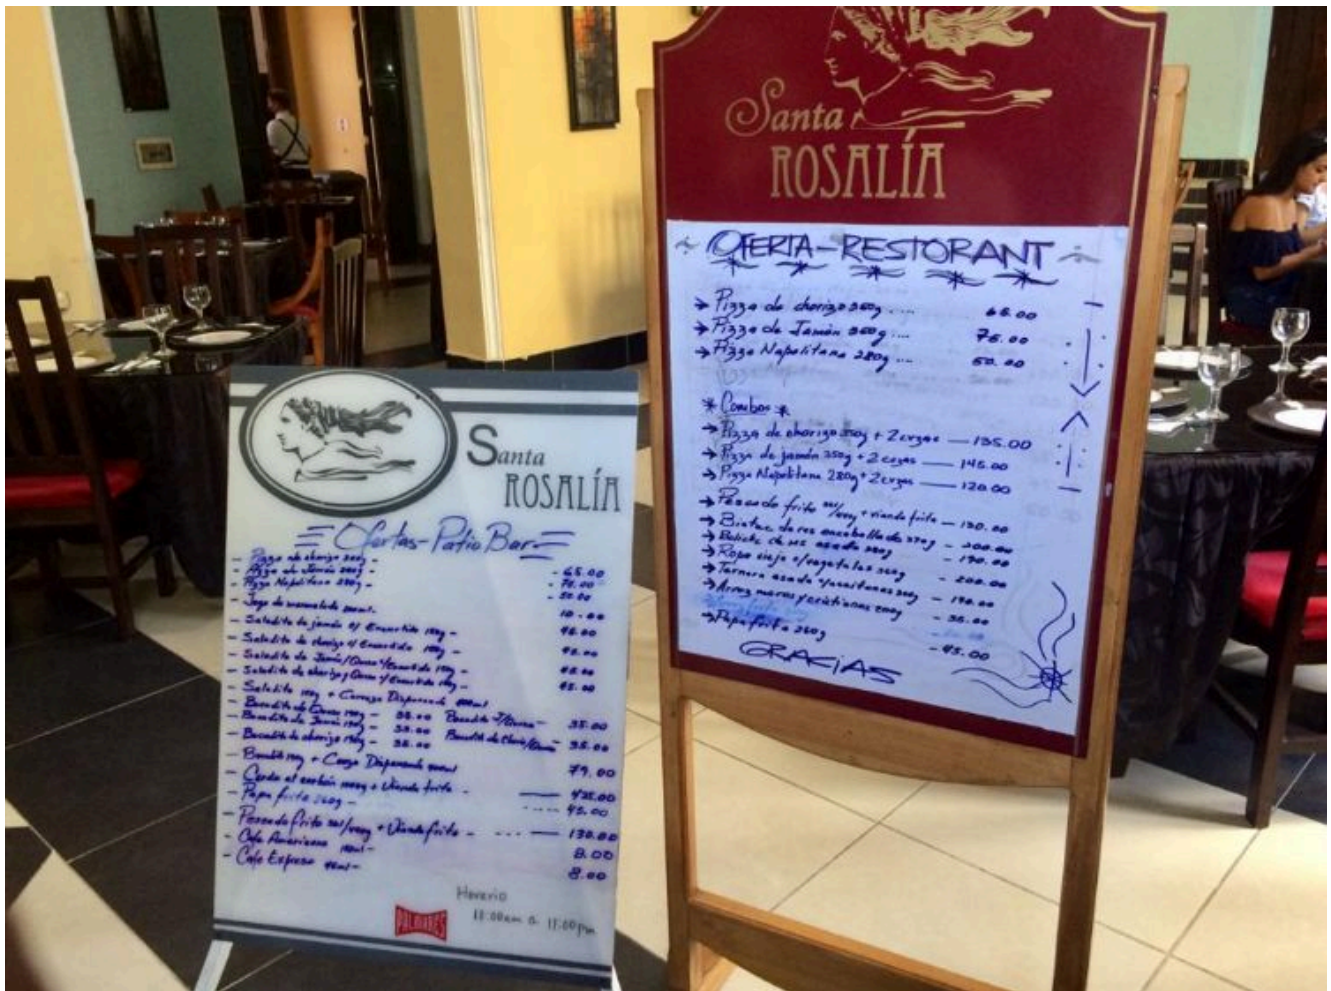 Santa
ROSALÍA
Ofertas-Patio Bar
- Pizza de chorizo 350g - - 65.00
- Pizza de Jamón 350g - - 75.00
- Pizza Napolitana 280g - - 50.00
- Jugo de 10.00
- Saladito de jamón c/ Encurtido 150g - 45.00
- Saladito de chorizo c/ Encurtido 150g - 45.00
- Saladito de Jamón/Queso c/Encurtido 45.00
- Saladito de chorizo y Queso c/Encurtido 45.00
- Saladito + Cerveza Dispensada
- Bocadito de Queso - 35.00 Bocadito J/Queso - 35.00
- Bocadito de Jamón - 35.00 Bocadito de Chorizo/Queso - 35.00
- Bocadito de chorizo - 35.00
- Bocadito + Cerveza Dispensada 79.00
- Cerdo al carbón + Vianda frita - 425.00
- Papa frita 360g - 45.00
- Pescado frito + Vianda frita - 130.00
- Cafe Americano - 8.00
- Cafe Expreso - 8.00
Horario
11:00am a 11:00pm
PALMARES
Santa
ROSALÍA
OFERTA-RESTORANT
→ Pizza de chorizo 350g .... 65.00
→ Pizza de Jamón 350g .... 75.00
→ Pizza Napolitana 280g ... 50.00
* Combos *
→ Pizza de chorizo 350g + 2 cvzas — 135.00
→ Pizza de jamón 350g + 2 cvzas — 145.00
→ Pizza Napolitana 280g + 2 cvzas — 120.00
→ Pescado frito + vianda frita — 130.00
→ Bistec de res encebollado 370g - 200.00
→ de res asado - 190.00
→ Ropa vieja c/vegetales 360g - 200.00
→ Ternera asada c/aceitunas - 190.00
→ Arroz moros y cristianos 200g - 35.00
→ Papa frita 360g - 45.00
GRACIAS